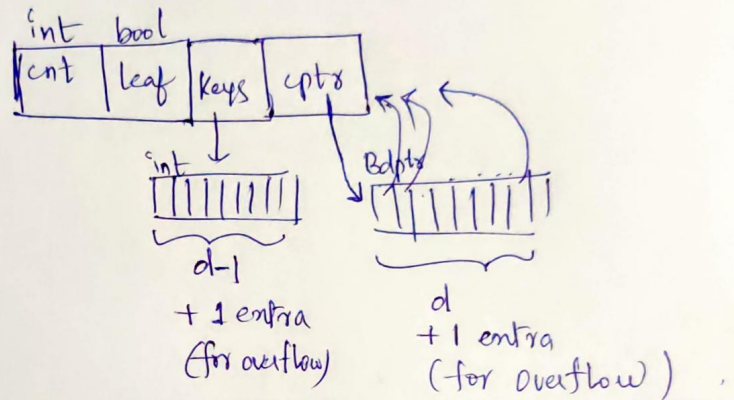 int bool
cnt leaf keys cptr
int
Bdptr
d-1
+ 1 entra
(for overflow)
d
+ 1 entra
(for overflow)